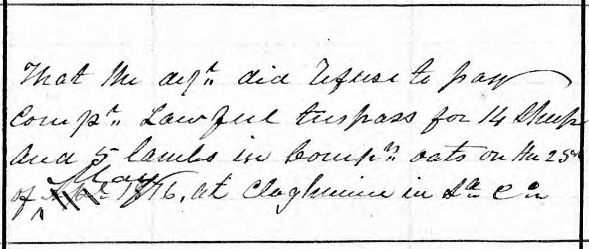 That the deft. did refuse to pay
Compt. Lawful trespass for 14 Sheep
and 5 lambs in Compts. oats on the 25th
of May 1876, at in